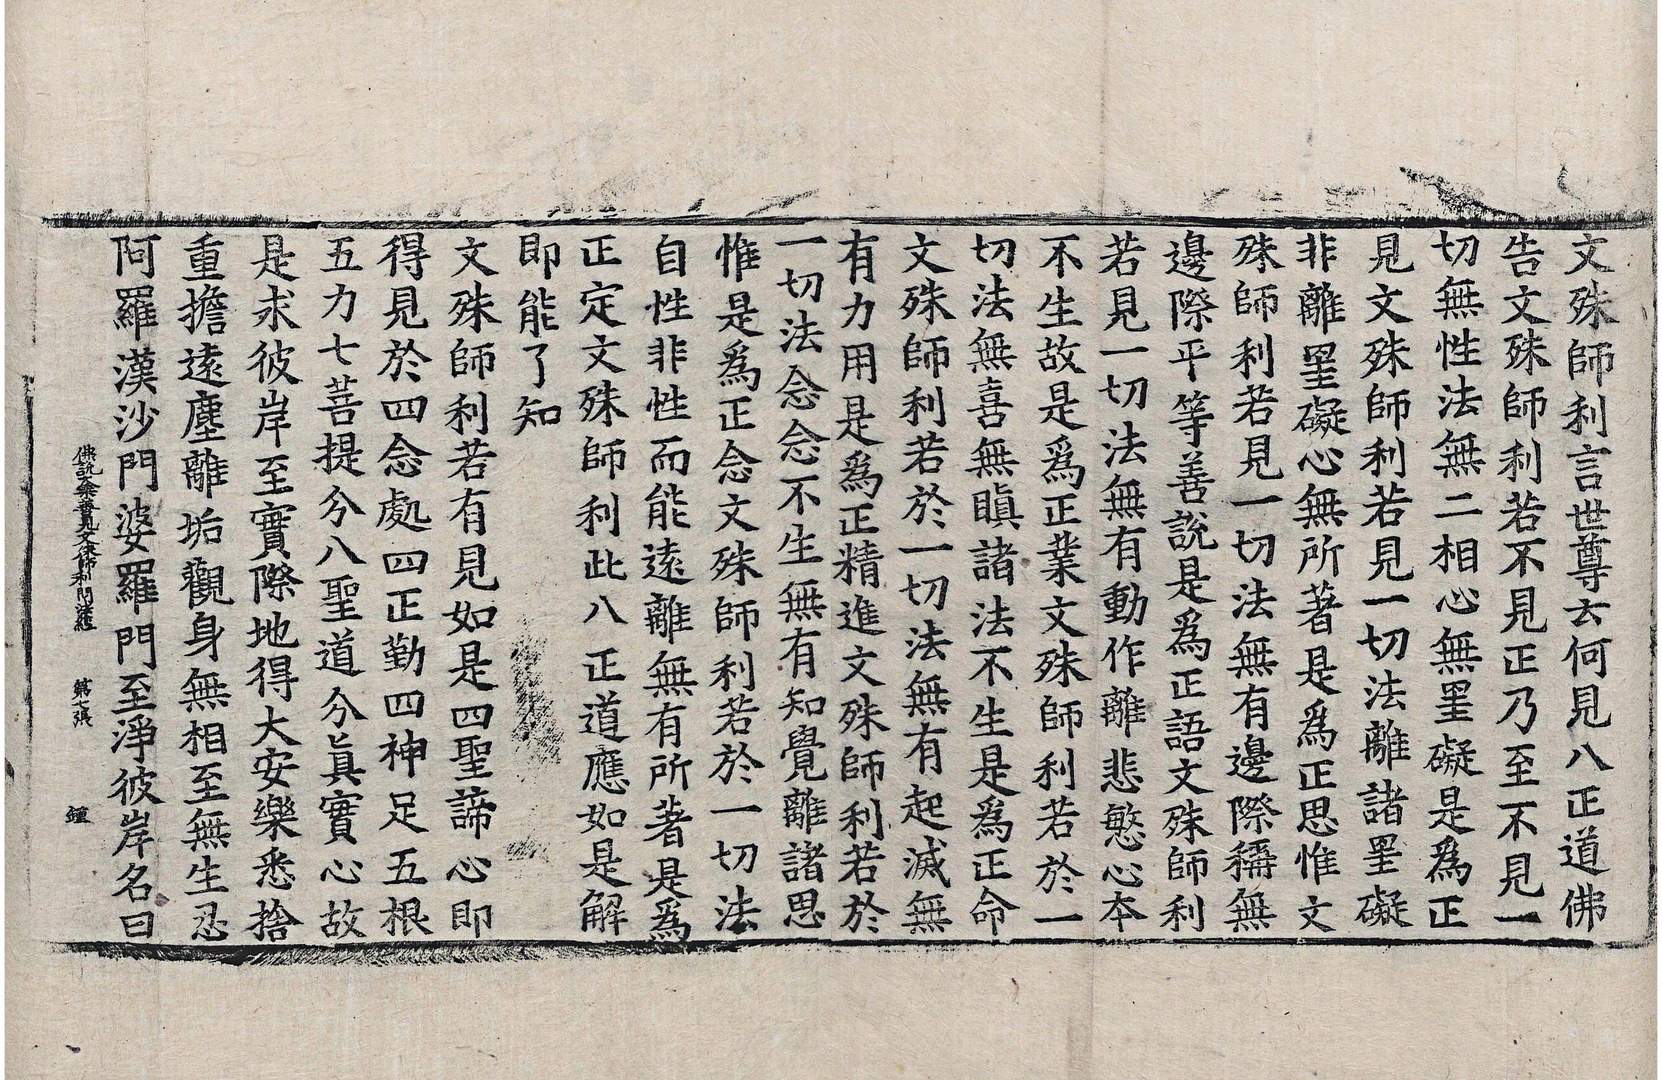 文殊師利言世尊云何見八正道佛
告文殊師利若不見正乃至不見一
切無性法無二相心無罣礙是爲正
見文殊師利若見一切法離諸罣礙
非離罣礙心無所著是爲正思惟文
殊師利若見一切法無有邊際稱無
邊際平等善說是爲正語文殊師利
若見一切法無有動作離悲愍心本
不生故是爲正業文殊師利若於一
切法無喜無瞋諸法不生是爲正命
文殊師利若於一切法無有起滅無
有力用是爲正精進文殊師利若於
一切法念念不生無有知覺離諸思
惟是爲正念文殊師利若於一切法
自性非性而能遠離無有所著是爲
正定文殊師利此八正道應如是解
即能了知
文殊師利若有見如是四聖諦心即
得見於四念處四正勤四神足五根
五力七菩提分八聖道分眞實心故
是求彼岸至實際地得大安樂悉捨
重擔遠塵離垢觀身無相至無生忍
阿羅漢沙門婆羅門至淨彼岸名曰
佛說大乘善見文殊師利問法經 第七張 鍾